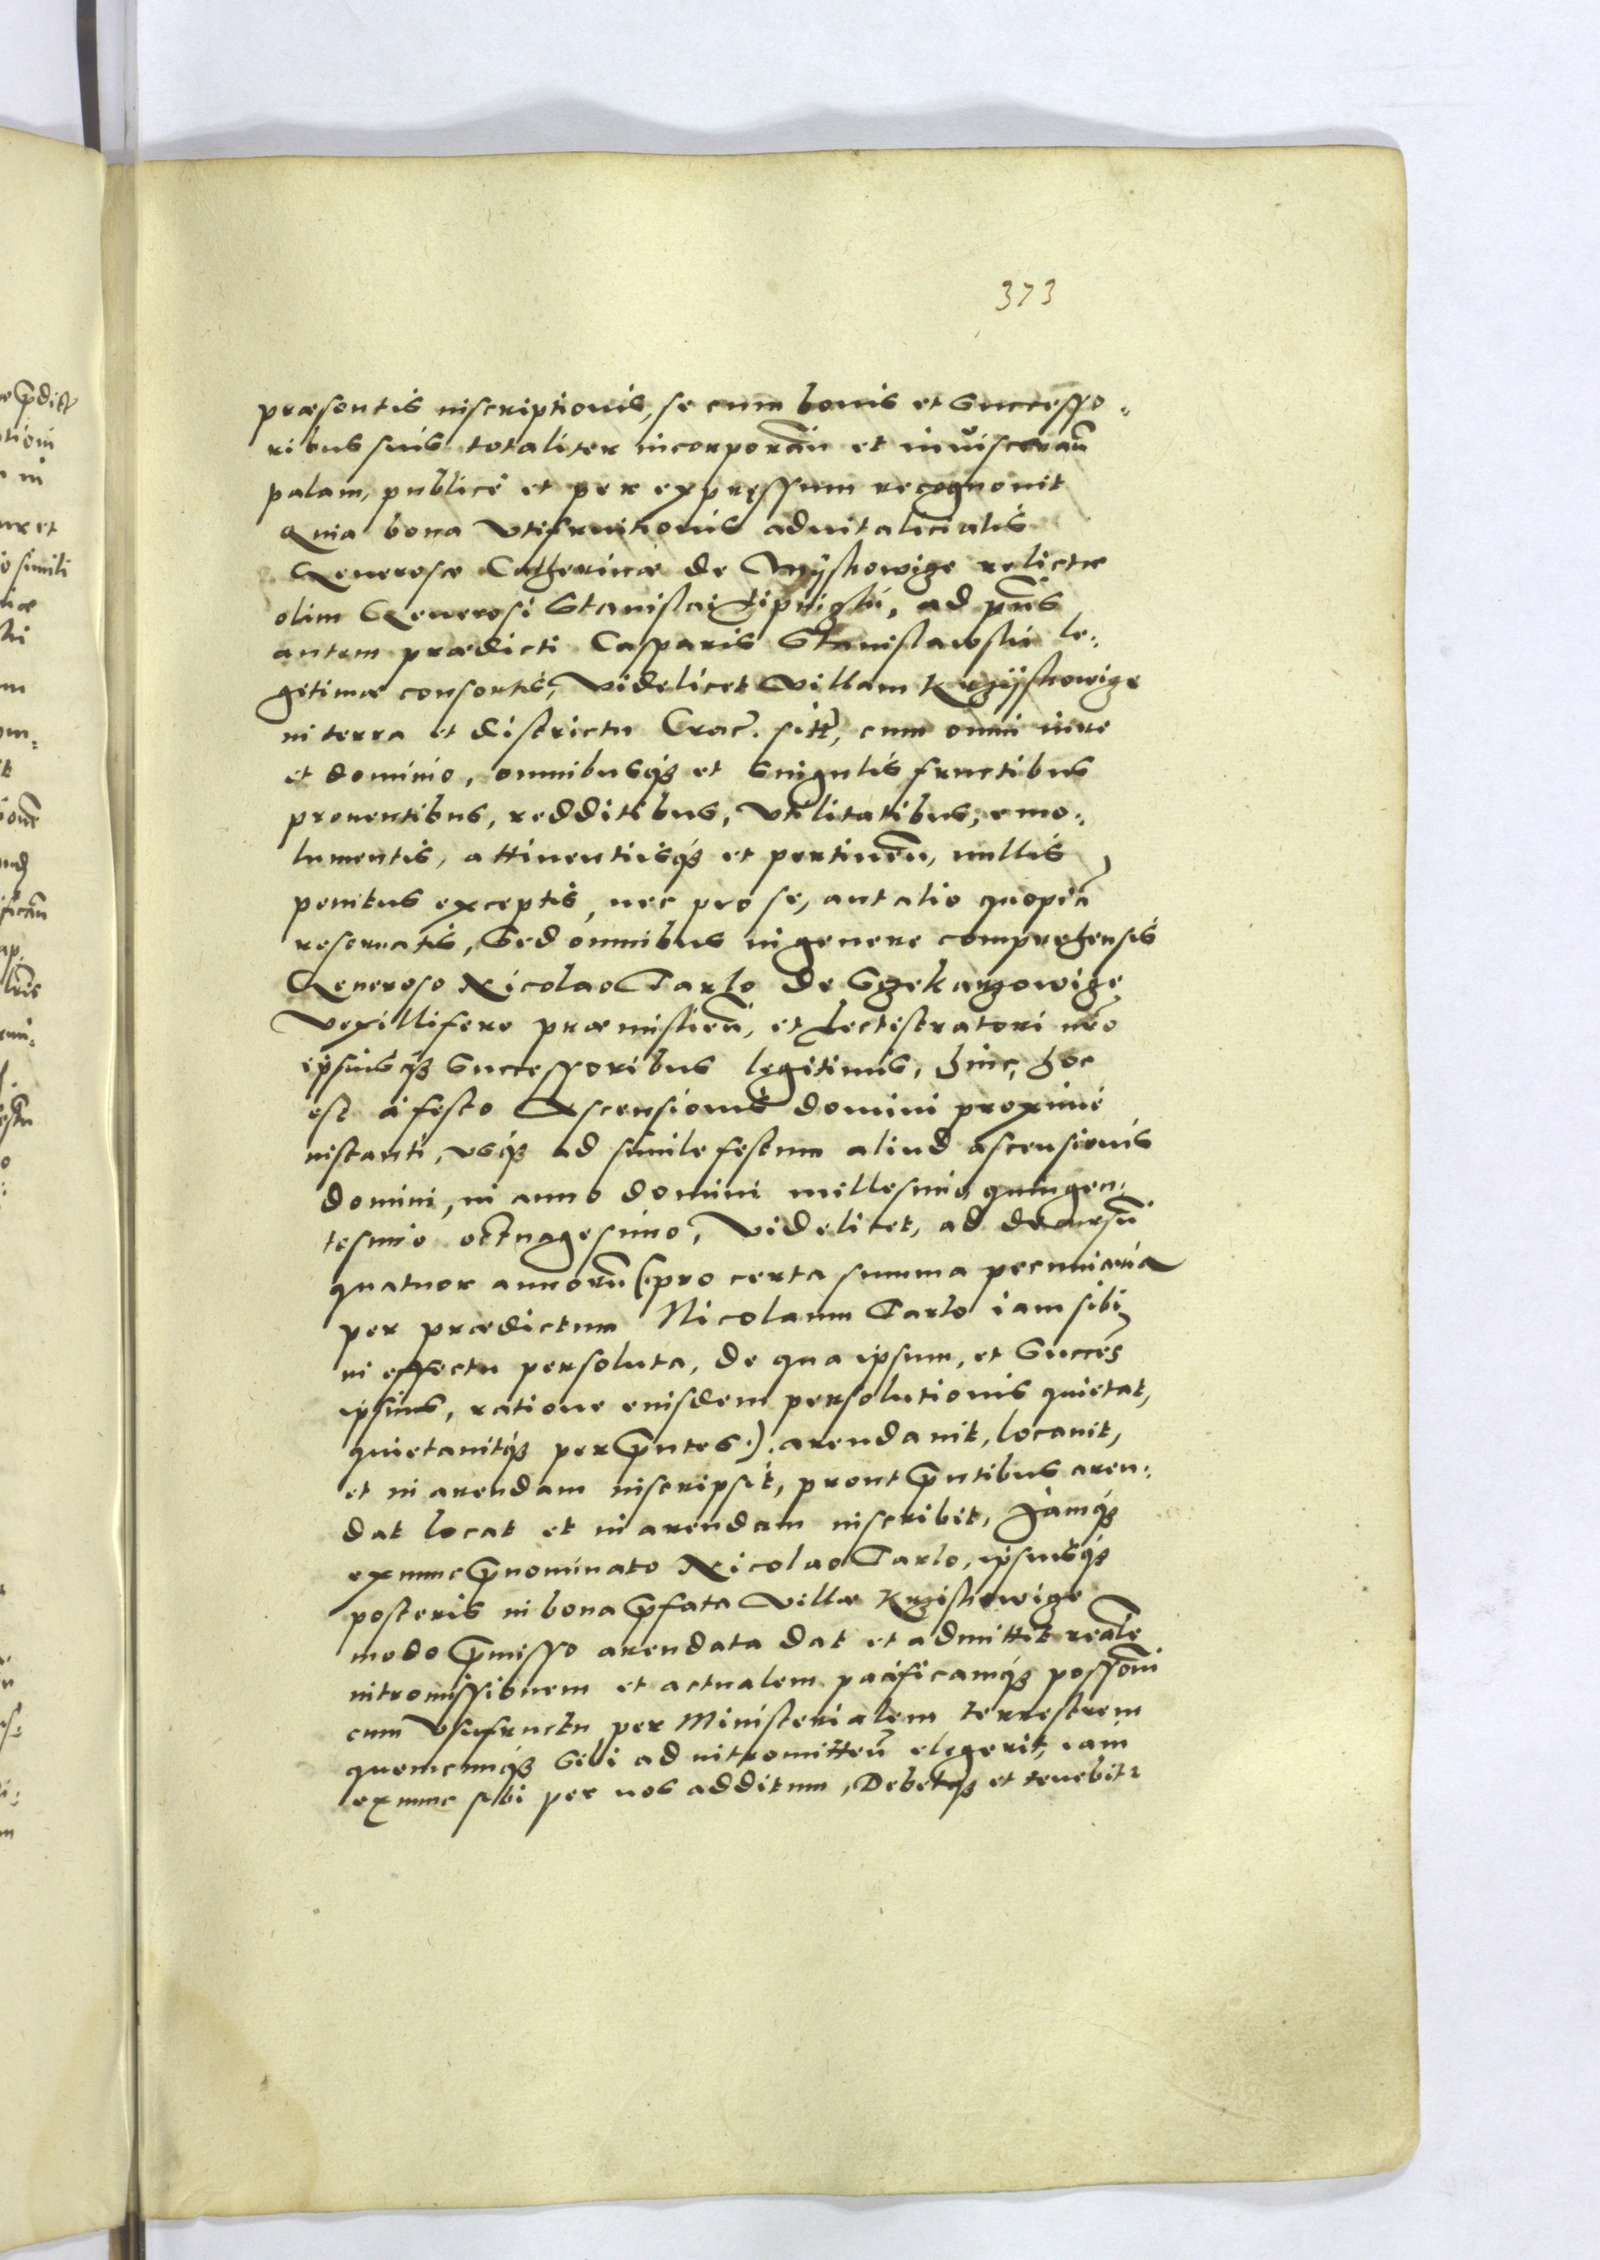 373
præsentis inscriptionis, se cum bonis et Successo-
ribus suis totaliter incorporan̄ et inuisceran̄
palam, publicè et per expressum recognouit
Quia bona vtifruitionis aduitalicialis
Generosæ Catherinæ de relictæ
olim Generosi Stanislai ad pn̄s
autem prædicti Casparis Stanislawski le-
gitimæ consortis, videlicet villam Krzÿstowige
in terra et districtu Crac. sitt̄, cum omni iure
et dominio, omnibusq3 et singulis fructibus
prouentibus, redditibus, vtilitatibus, emo-
lumentis, attinentiisq3 et pertinen̄, nullis
penitus exceptis, nec pro se, aut alio quopiā
reseruatis, Sed omnibus in genere comprehensis
Generoso Nicolao Tarlo de Szekarzowige
Vexillifero præmislien̄, et Lectistratori nr̄o
ipsiusq3 Successoribus legitimis, hinc, hoc
est à festo Ascensionis domini proximè
instanti, vsq3 ad simile festum aliud ascensionis
domini, in anno domini millesimo quingen-
tesimo octuagesimo, videlicet, ad decursū
quatuor annorū (:pro certa summa pecuniaria
per prædictum Nicolaum Tarlo iam sibi
in effectu persoluta, de qua ipsum, et Succes̄
ipsius, ratione eiusdem persolutionis quietat,
quietauitq3 per p̄ntes:). arendauit, locauit,
et in arendam inscripsit, prout p̄ntibus aren-
dat locat et in arendam inscribit, Jamq3
exnunc p̄nominato Nicolao Tarlo, ipsiusq3
posteris in bona p̄fata villæ Krzistowige
modo p̄misso arendata dat et admittit realē
intromissionem et actualem pacificamq3 posson̄i
cum vsufructu per Ministerialem terrestrem
quemcunq3 Sibi ad intromitten̄ elegerit, iam
exnunc sibi per nos additum, Debetq3 et tenebitr